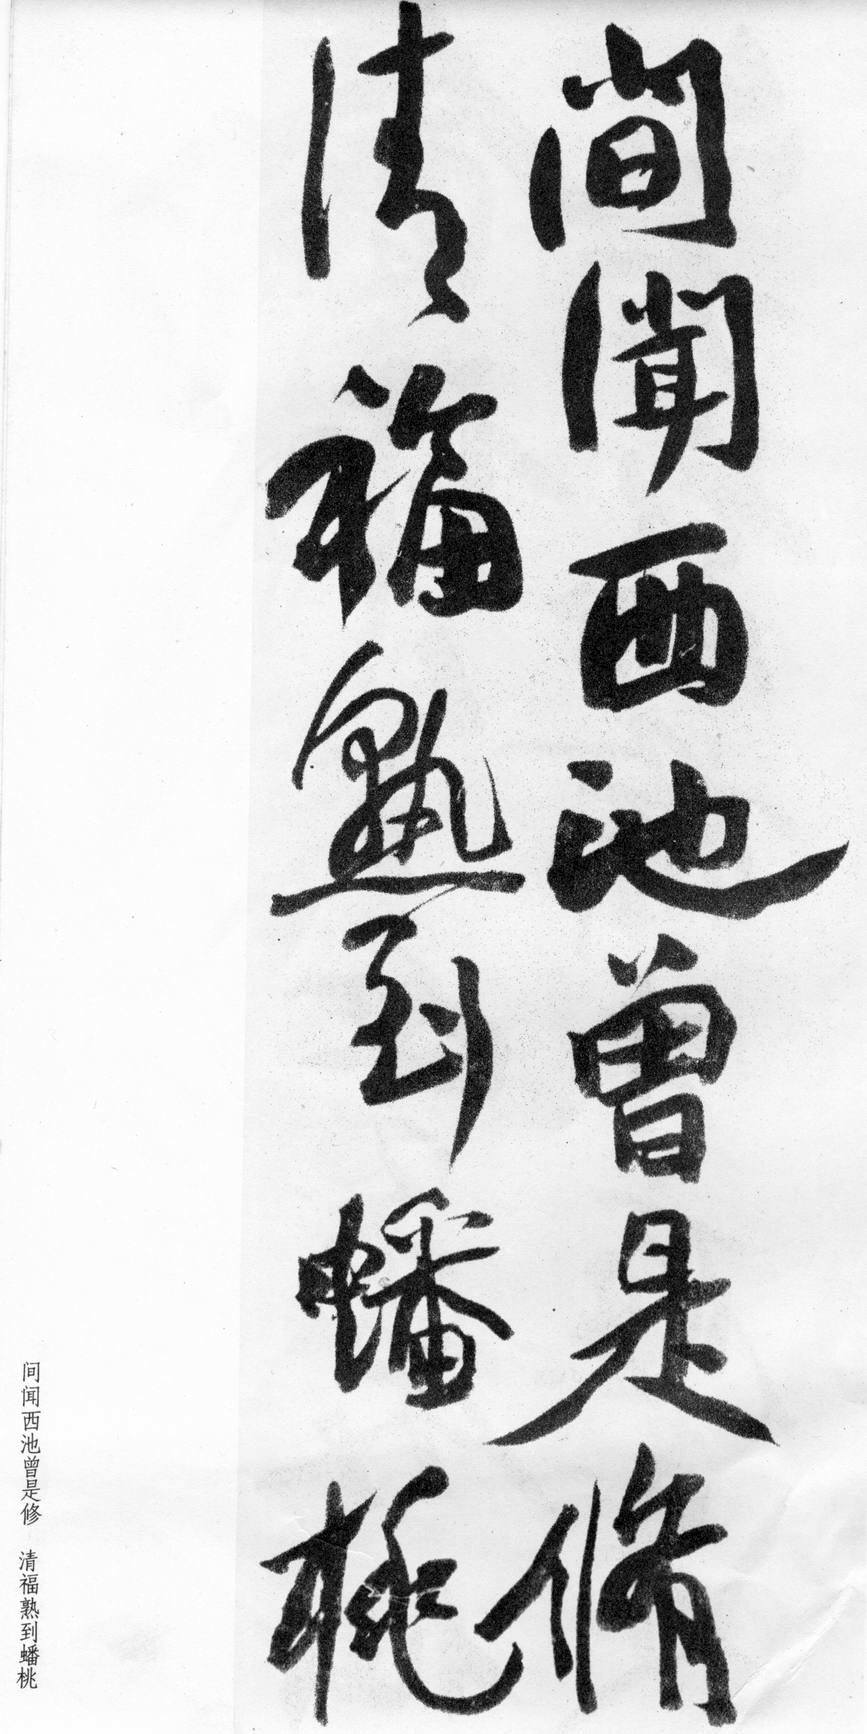 間聞西池曾是脩
清福熟到蟠桃
间闻西池曾是修 清福熟到蟠桃